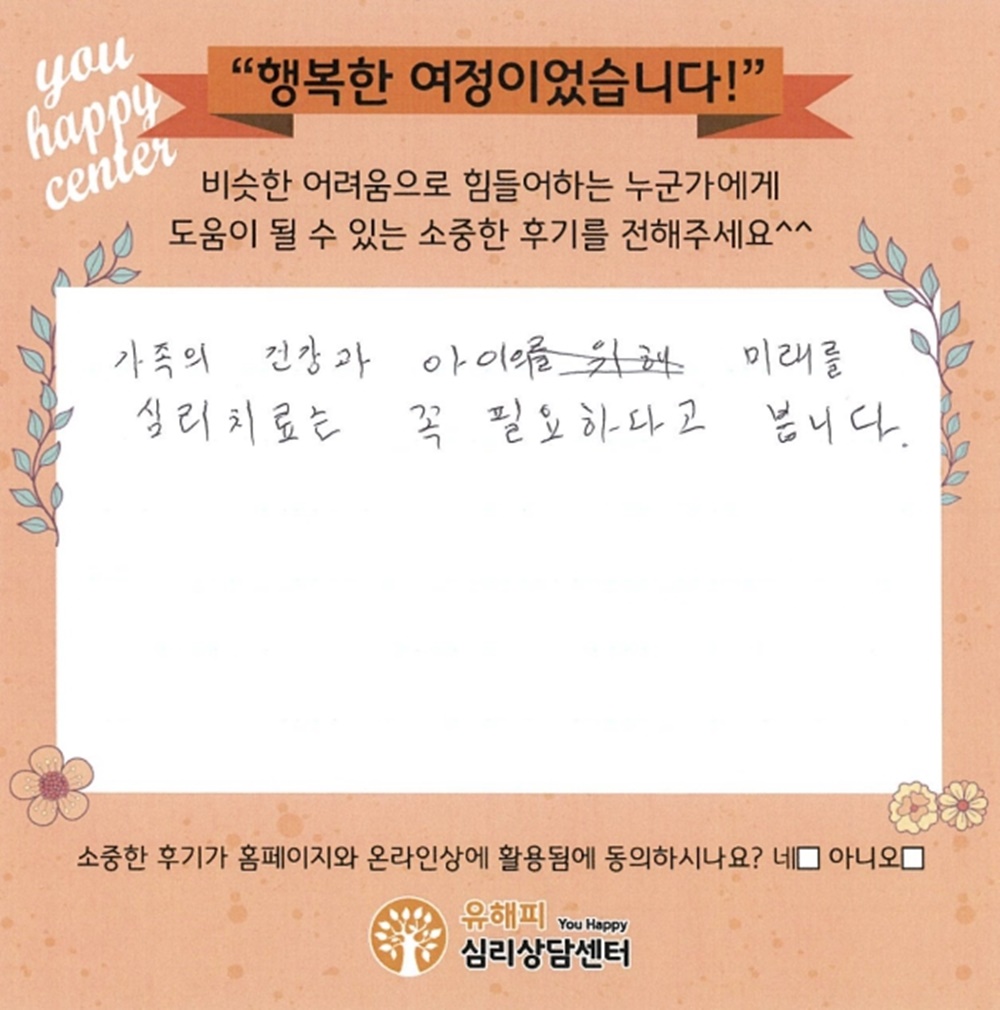 you
happy
center
“행복한 여정이었습니다!”
비슷한 어려움으로 힘들어하는 누군가에게
도움이 될 수 있는 소중한 후기를 전해주세요^^
가족의 건강과 아이의 미래를
심리치료는 꼭 필요하다고 봅니다.
소중한 후기가 홈페이지와 온라인상에 활용됨에 동의하시나요? 네□ 아니오□
유해피 You Happy
심리상담센터